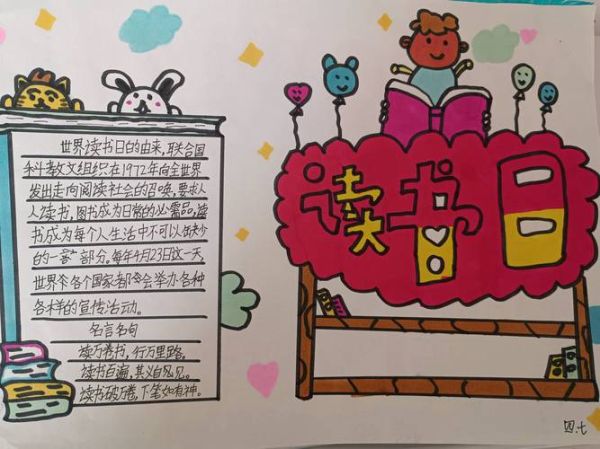 世界读书日的由来,联合国
科教文组织在1972年向全世界
发出走向阅读社会的召唤,要求人
人读书,图书成为日常的必需品,读
书成为每个人生活中不可以缺少
的一部分,每年4月23日这一天
世界各个国家都会举办各种
各样的宣传活动。
名言名句
读万卷书,行万里路。
读书百遍,其义自见。
读书破万卷,下笔如有神。
读书日
四.七